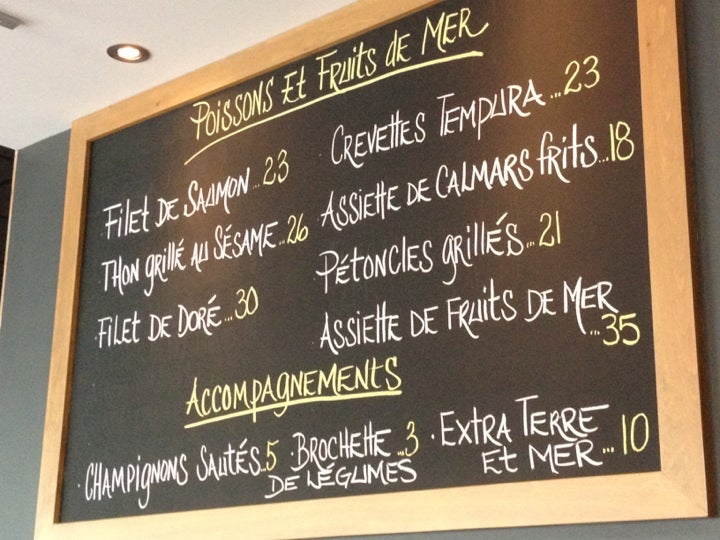 Poissons et Fruits de Mer
Filet de Saumon...23
Thon grillé au Sésame...26
Filet de Doré...30
Crevettes Tempura...23
Assiette de Calmars frits...18
Pétoncles grillés...21
Assiette de Fruits de Mer
...35
Accompagnements
· Champignons Sautés...5
· Brochette ...3
de légumes
· Extra Terre
et Mer...10